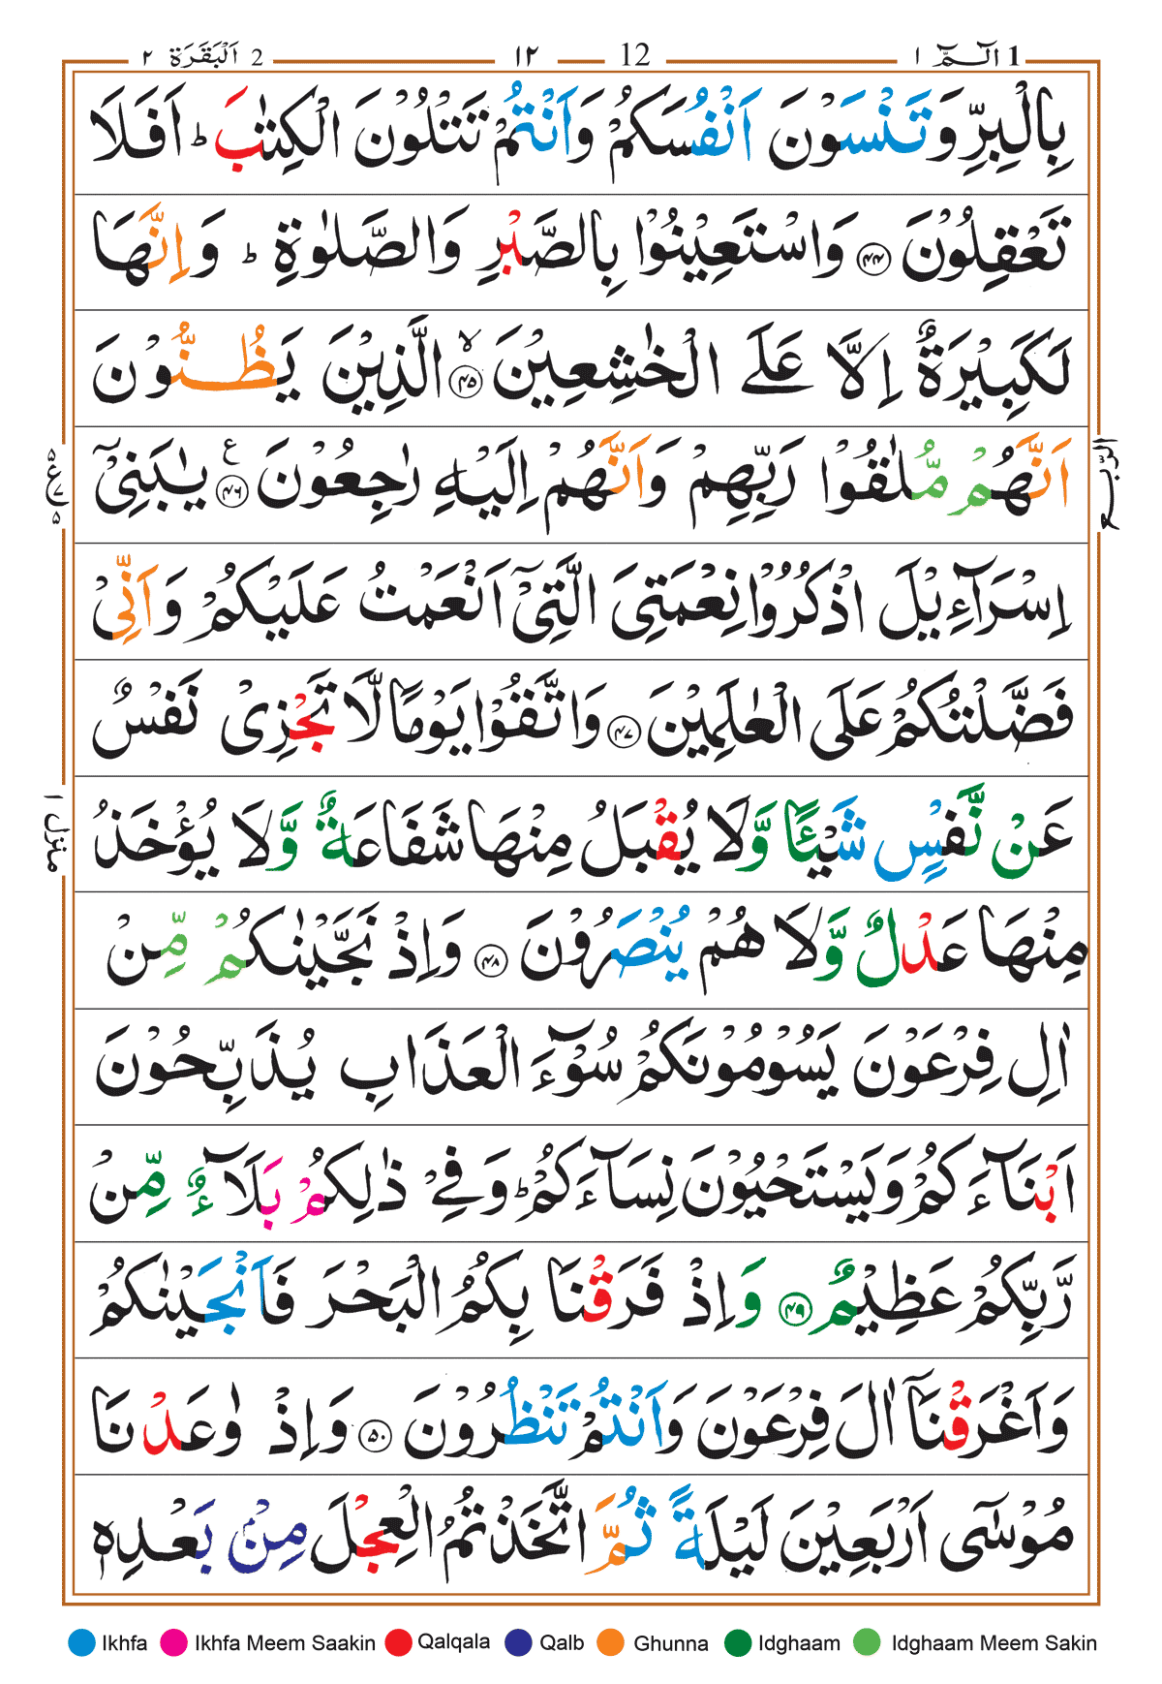 1 الٓـمّٓ ١ 12 ١٢ 2 اَلْبَقَرَة ٢
بِالْبِرِّ وَتَنْسَوْنَ اَنْفُسَكُمْ وَاَنْتُمْ تَتْلُوْنَ الْكِتٰبَ ؕ اَفَلَا
تَعْقِلُوْنَ ﴿۴۴﴾ وَاسْتَعِيْنُوْا بِالصَّبْرِ وَالصَّلٰوةِ ؕ وَاِنَّهَا
لَكَبِيْرَةٌ اِلَّا عَلَى الْخٰشِعِيْنَ ﴿۴۵﴾ۙ الَّذِيْنَ يَظُنُّوْنَ
اَنَّهُمْ مُّلٰقُوْا رَبِّهِمْ وَاَنَّهُمْ اِلَيْهِ رٰجِعُوْنَ ﴿۴۶﴾ ع يٰبَنِىْٓ
الرّبع
اِسْرَآءِيْلَ اذْكُرُوْا نِعْمَتِىَ الَّتِىْٓ اَنْعَمْتُ عَلَيْكُمْ وَاَنِّىْ
فَضَّلْتُكُمْ عَلَى الْعٰلَمِيْنَ ﴿۴۷﴾ وَاتَّقُوْا يَوْمًا لَّا تَجْزِىْ نَفْسٌ
عَنْ نَّفْسٍ شَيْئًا وَّلَا يُقْبَلُ مِنْهَا شَفَاعَةٌ وَّلَا يُؤْخَذُ
منزل ١
مِنْهَا عَدْلٌ وَّلَا هُمْ يُنْصَرُوْنَ ﴿۴۸﴾ وَاِذْ نَجَّيْنٰكُمْ مِّنْ
اٰلِ فِرْعَوْنَ يَسُوْمُوْنَكُمْ سُوْٓءَ الْعَذَابِ يُذَبِّحُوْنَ
اَبْنَآءَكُمْ وَيَسْتَحْيُوْنَ نِسَآءَكُمْ ؕ وَفِىْ ذٰلِكُمْ بَلَآءٌ مِّنْ
رَّبِّكُمْ عَظِيْمٌ ﴿۴۹﴾ وَاِذْ فَرَقْنَا بِكُمُ الْبَحْرَ فَاَنْجَيْنٰكُمْ
وَاَغْرَقْنَآ اٰلَ فِرْعَوْنَ وَاَنْتُمْ تَنْظُرُوْنَ ﴿۵۰﴾ وَاِذْ وٰعَدْنَا
مُوْسٰٓى اَرْبَعِيْنَ لَيْلَةً ثُمَّ اتَّخَذْتُمُ الْعِجْلَ مِنْۢ بَعْدِهٖ
Ikhfa Ikhfa Meem Saakin Qalqala Qalb Ghunna Idghaam Idghaam Meem Sakin